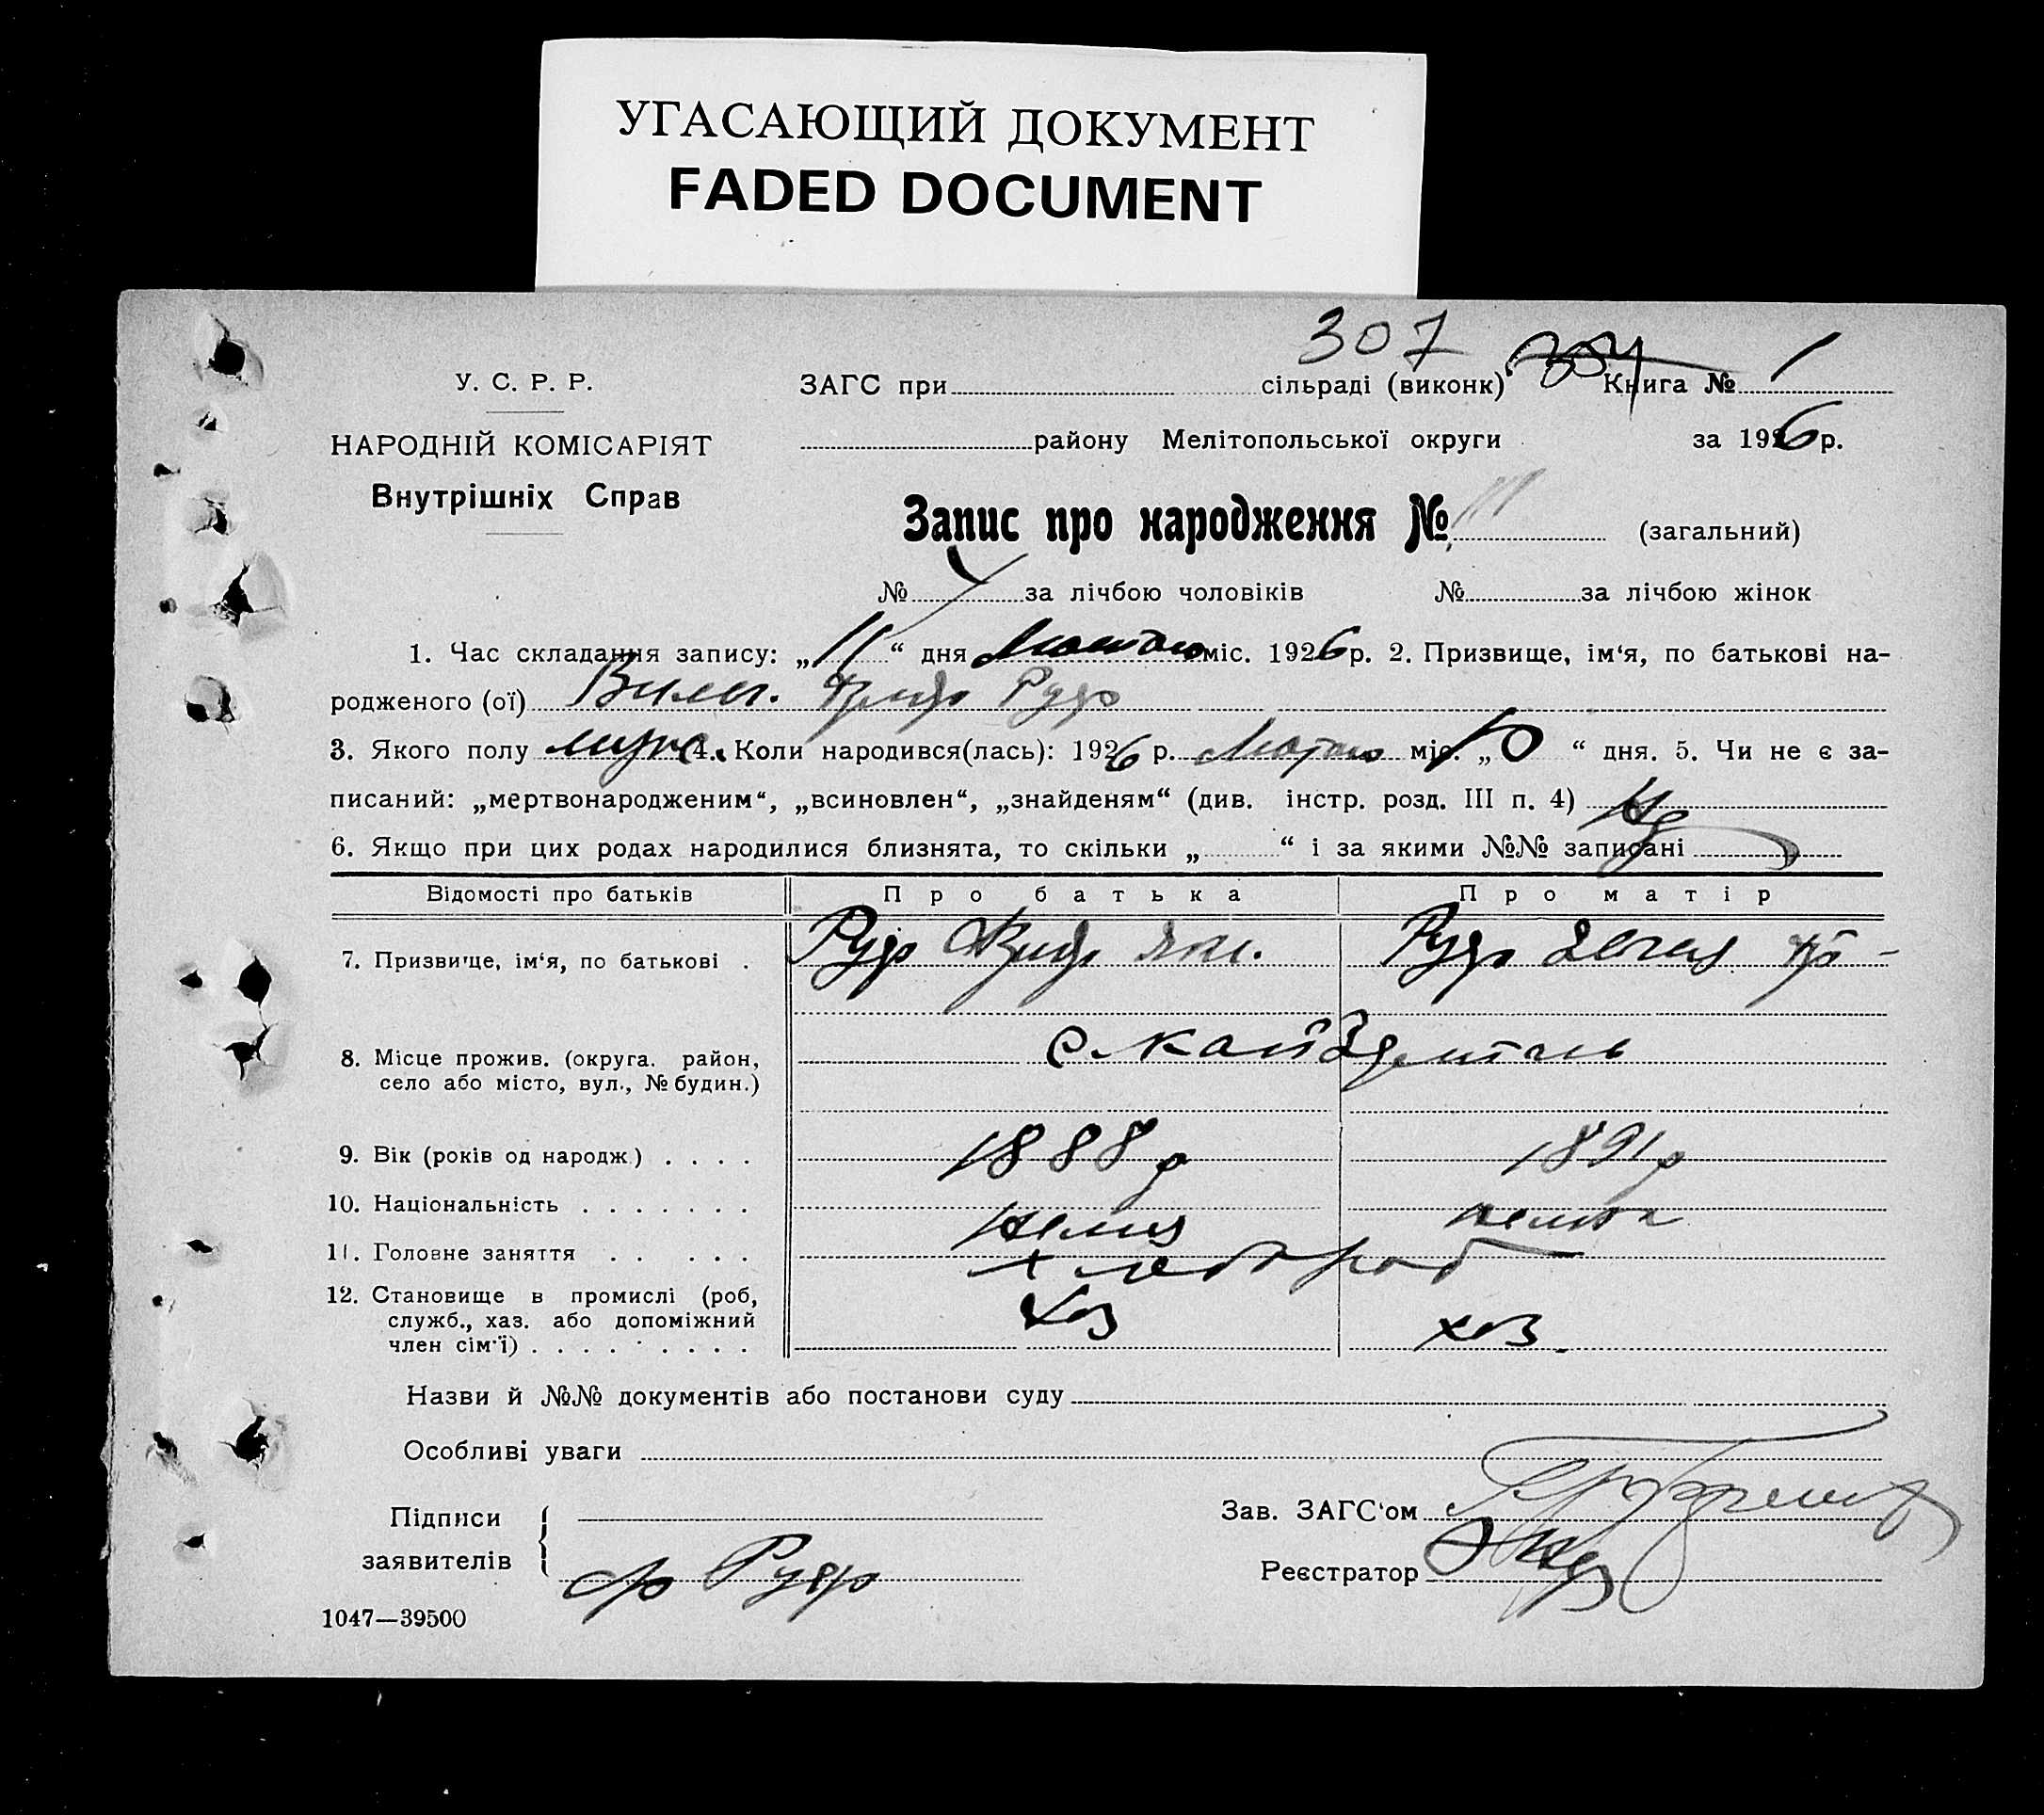 УГАСАЮЩИЙ ДОКУМЕНТ
FADED DOCUMENT
307
У. С. Р. Р.
ЗАГС при сільраді (виконк) Книга № 1
НАРОДНІЙ КОМІСАРІЯТ
району Мелітопольської округи за 1926 р.
Внутрішніх Справ
Запис про народження № (загальний)
№ за лічбою чоловіків № за лічбою жінок
1. Час складання запису: „11“ дня Лютого міс. 1926 р. 2. Призвище, ім‘я, по батькові на-
родженого (ої) Рудо
3. Якого полу муж. 4. Коли народився(лась): 1926 р. Лютого міс. „10“ дня. 5. Чи не є за-
писаний: „мертвонародженим“, „всиновлен“, „знайденям“ (див. інстр. розд. III п. 4)
6. Якщо при цих родах народилися близнята, то скільки „ “ і за якими №№ записані
Відомості про батьків Про батька Про матір
7. Призвище, ім‘я, по батькові . Рудо Рудо
8. Місце прожив. (округа. район,
село або місто, вул., № будин.)
9. Вік (років од народж.) . . . . 1888 р 1891 р
10. Національність . . . . . . .
11. Головне заняття . . . . . хлебороб
12. Становище в промислі (роб,
служб., хаз. або допоміжний
член сім‘ї) . . . . . . . . . хоз хоз.
Назви й №№ документів або постанови суду
Особливі уваги
Підписи
заявителів
Рудо
Зав. ЗАГС‘ом
Реєстратор
1047—39500